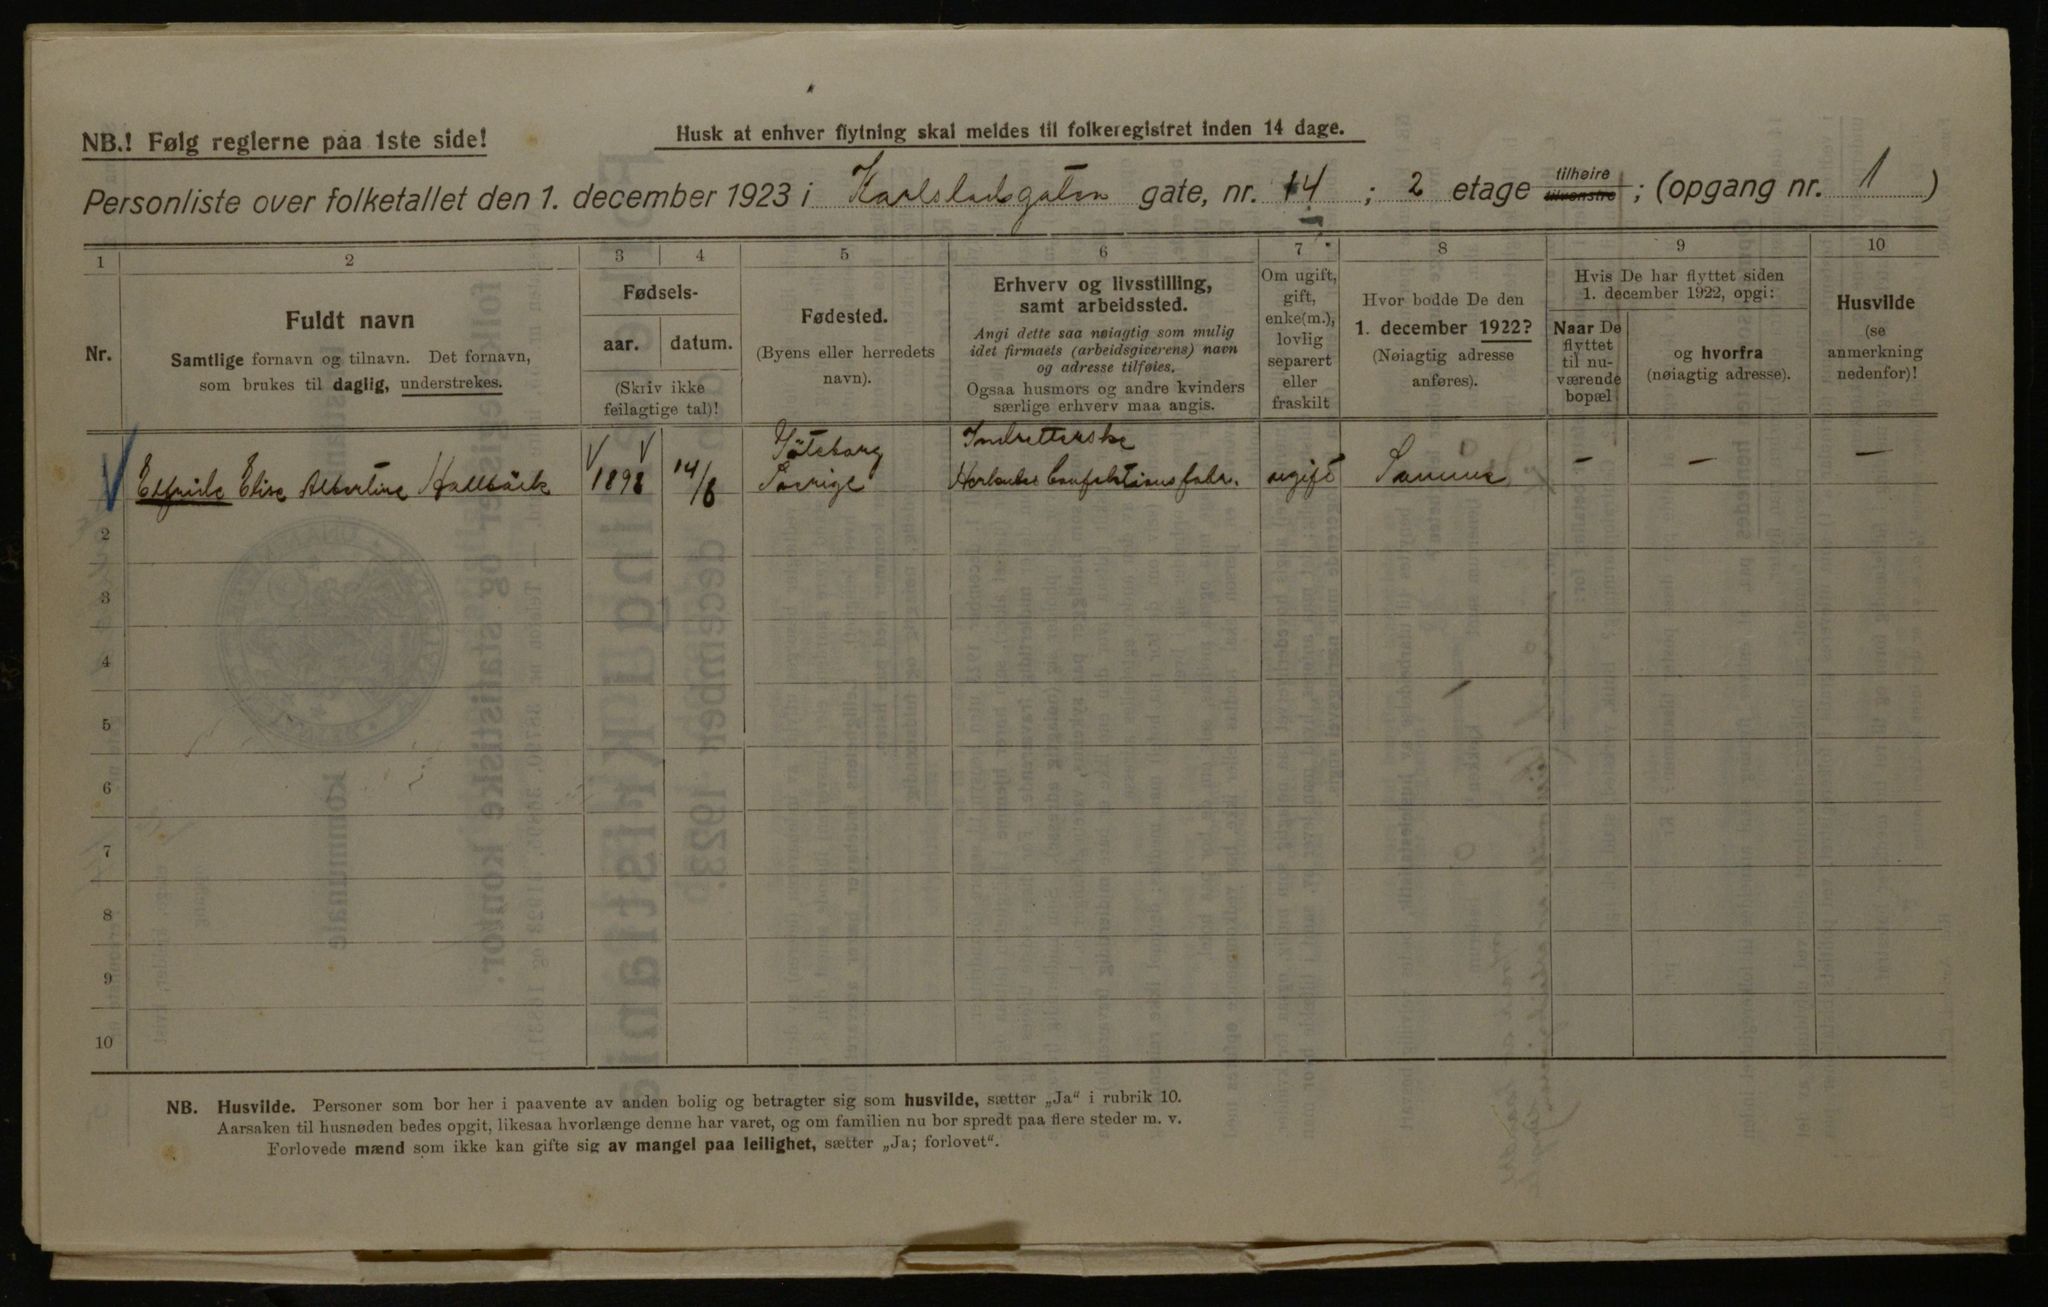 NB.! Følg reglerne paa 1ste side!
Husk at enhver flytning skal meldes til folkeregistret inden 14 dage.
Personliste over folketallet den 1. december 1923 i Karlstadsgaten gate, nr. 14 ; 2 etage tilhøire tilvenstre ; (opgang nr. 1 )
1 2 3 4 5 6 7 8 9 10
Nr.
Fuldt navn
Samtlige fornavn og tilnavn. Det fornavn,
som brukes til daglig, understrekes.
Fødsels-
aar. datum.
(Skriv ikke
feilagtige tal)!
Fødested.
(Byens eller herredets
navn).
Erhverv og livsstilling,
samt arbeidssted.
Angi dette saa nøiagtig som mulig
idet firmaets (arbeidsgiverens) navn
og adresse tilføies.
Ogsaa husmors og andre kvinders
særlige erhverv maa angis.
Om ugift,
gift,
enke(m.),
lovlig
separert
eller
fraskilt
Hvor bodde De den
1. december 1922?
(Nøiagtig adresse
anføres).
Hvis De har flyttet siden
1. december 1922, opgi:
Naar De
flyttet
til nu-
værende
bopæl
og hvorfra
(nøiagtig adresse).
Husvilde
(se
anmerkning
nedenfor)!
Göteborg Indretterske
Elfride Elise Albertine Hallbäck 1898 14/8 Sverige Herkules Confektionsfabr. ugift Samme — — —
2
3
4
5
6
7
8
9
10
NB. Husvilde. Personer som bor her i paavente av anden bolig og betragter sig som husvilde, sætter „Ja" i rubrik 10.
Aarsaken til husnøden bedes opgit, likesaa hvorlænge denne har varet, og om familien nu bor spredt paa flere steder m. v.
Forlovede mænd som ikke kan gifte sig av mangel paa leilighet, sætter „Ja; forlovet".